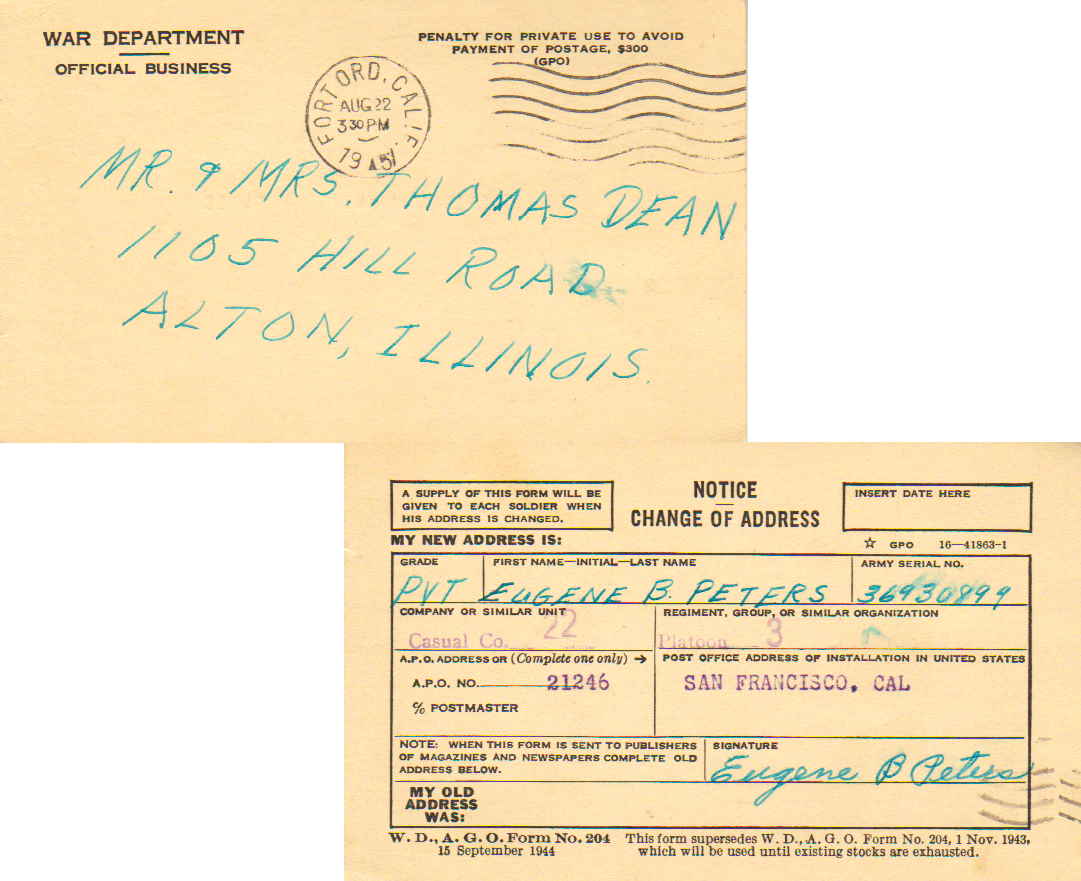 WAR DEPARTMENT
OFFICIAL BUSINESS
PENALTY FOR PRIVATE USE TO AVOID
PAYMENT OF POSTAGE, $300
(GPO)
FORT ORD, CALIF.
AUG 22
3 30 PM
19
MR. & MRS. THOMAS DEAN
1105 HILL ROAD
ALTON, ILLINOIS.
A SUPPLY OF THIS FORM WILL BE
GIVEN TO EACH SOLDIER WHEN
HIS ADDRESS IS CHANGED.
NOTICE
CHANGE OF ADDRESS
INSERT DATE HERE
MY NEW ADDRESS IS:
☆ GPO 16—41863-1
GRADE
FIRST NAME—INITIAL—LAST NAME
ARMY SERIAL NO.
PVT
EUGENE B. PETERS
36930899
COMPANY OR SIMILAR UNIT
REGIMENT, GROUP, OR SIMILAR ORGANIZATION
Casual Co. 22
Platoon 3
A.P.O. ADDRESS OR (Complete one only) →
POST OFFICE ADDRESS OF INSTALLATION IN UNITED STATES
A.P.O. NO. 21246
SAN FRANCISCO, CAL
% POSTMASTER
NOTE: WHEN THIS FORM IS SENT TO PUBLISHERS
OF MAGAZINES AND NEWSPAPERS COMPLETE OLD
ADDRESS BELOW.
SIGNATURE
Eugene B Peters
MY OLD
ADDRESS
WAS:
W. D., A. G. O. Form No. 204
15 September 1944
This form supersedes W. D., A. G. O. Form No. 204, 1 Nov. 1943,
which will be used until existing stocks are exhausted.